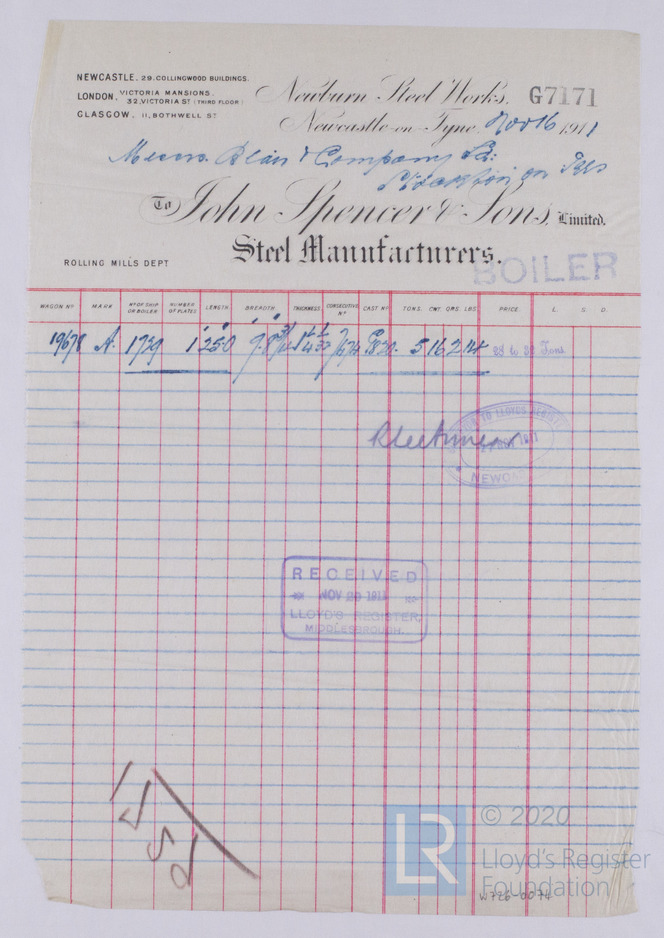 NEWCASTLE. 29. COLLINGWOOD BUILDINGS.
LONDON. VICTORIA MANSIONS.
32, VICTORIA ST (THIRD FLOOR)
GLASGOW. 11, BOTHWELL ST
Newburn Steel Works. G7171
Newcastle-on-Tyne, Nov 16 1911
Messrs. Blair & Company Ld:
Stockton on Tees
To John Spencer & Sons, Limited.
Steel Manufacturers.
ROLLING MILLS DEPT
BOILER
WAGON No MARK No OF SHIP OR BOILER NUMBER OF PLATES LENGTH BREADTH THICKNESS CONSECUTIVE No CAST No TONS. CWT. QRS. LBS. PRICE. L. S. D.
19678 A. 1729 1 25 0 5 16 2 14 28 to 32 Tons
TO LLOYDS REGISTER
RECEIVED
NOV 20 1911
LLOYD'S REGISTER,
MIDDLESBROUGH.
© 2020
LR Lloyd's Register
Foundation
W726-0074